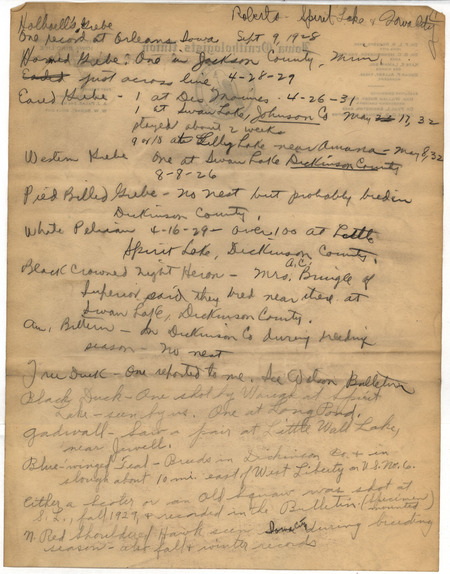 Roberts - Spirit Lake & Iowa City
Holboell's Grebe
One record at Orleans Iowa Sept 9, 1928
Horned Grebe: One in Jackson County, Minn,
Eared just across line 4-28-29
Eared Grebe - 1 at Des Moines - 4-26-31
1 at Swan Lake, Johnson Co - May 17, 32
stayed about 2 weeks
9 or 10 at Lilly Lake near Amana - May 8, 32
Western Grebe One at Swan Lake Dickinson County
8-8-26
Pied Billed Grebe - No nest but probably breed in
Dickinson County.
White Pelican 4-16-29 - over 100 at Little
Spirit Lake, Dickinson County.
Black Crowned Night Heron - Mrs. A.C. of
Superior said they bred near there at
Swan Lake, Dickinson County.
Am. Bittern - in Dickinson Co during breeding
season - No nest
Tree Duck - One reported to me. See Wilson Bulletin
Black Duck - One shot by at Spirit
Lake - seen by us. One at Long Pond.
Gadwall - Saw a pair at Little Wall Lake,
near Jewell.
Blue-winged Teal - Breeds in Dickinson Co. & in
slough about 10 mi. east of West Liberty on U.S. No. 6.
Either a Scoter or an Old Squaw was shot at
S.L., fall 1929, & recorded in the Bulletin. (Specimen mounted)
N. Red Shouldered Hawk seen Iowa City during breeding
season - also fall & winter records